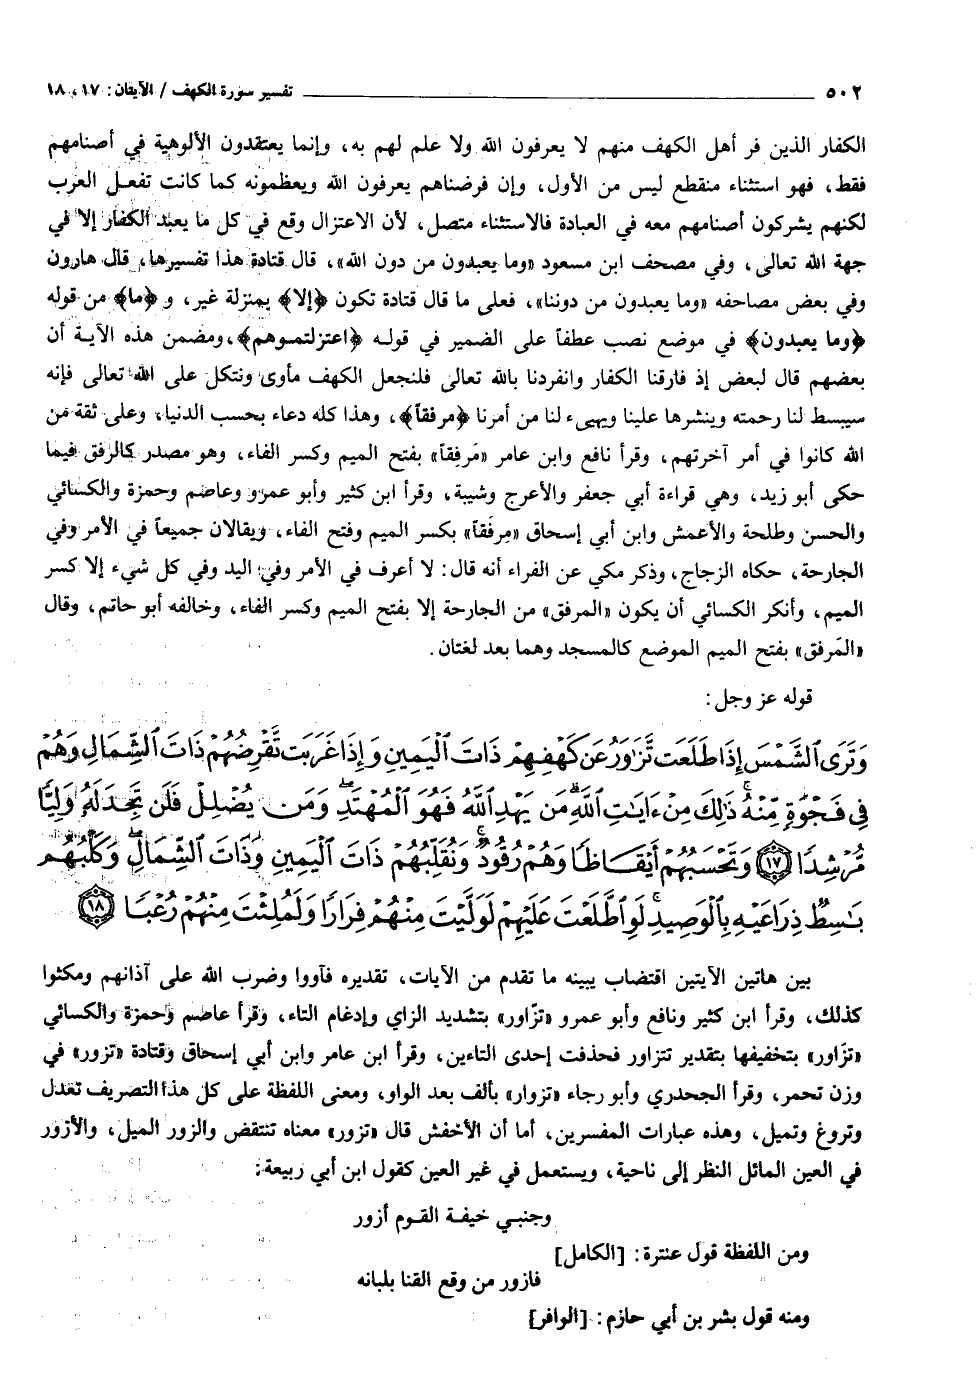 ٥٠٢ ــــــــــــــــ تفسير سورة الكهف / الآيتان: ١٧، ١٨
الكفار الذين فر أهل الكهف منهم لا يعرفون الله ولا علم لهم به، وإنما يعتقدون الألوهية في أصنامهم
فقط، فهو استثناء منقطع ليس من الأول، وإن فرضناهم يعرفون الله ويعظمونه كما كانت تفعل العرب
لكنهم يشركون أصنامهم معه في العبادة فالاستثناء متصل، لأن الاعتزال وقع في كل ما يعبد الكفار إلا في
جهة الله تعالى، وفي مصحف ابن مسعود «وما يعبدون من دون الله»، قال قتادة هذا تفسيرها، قال هارون
وفي بعض مصاحفه «وما يعبدون من دوننا»، فعلى ما قال قتادة تكون ﴿إلا﴾ بمنزلة غير، و ﴿ما﴾ من قوله
﴿وما يعبدون﴾ في موضع نصب عطفاً على الضمير في قوله ﴿اعتزلتموهم﴾، ومضمن هذه الآية أن
بعضهم قال لبعض إذ فارقنا الكفار وانفردنا بالله تعالى فلنجعل الكهف مأوى ونتكل على الله تعالى فإنه
سيبسط لنا رحمته وينشرها علينا ويهيىء لنا من أمرنا ﴿مرفقاً﴾، وهذا كله دعاء بحسب الدنيا، وعلى ثقة من
الله كانوا في أمر آخرتهم، وقرأ نافع وابن عامر «مَرفِقاً» بفتح الميم وكسر الفاء، وهو مصدر كالرفق فيما
حكى أبو زيد، وهي قراءة أبي جعفر والأعرج وشيبة، وقرأ ابن كثير وأبو عمرو وعاصم وحمزة والكسائي
والحسن وطلحة والأعمش وابن أبي إسحاق «مِرفَقاً» بكسر الميم وفتح الفاء، ويقالان جميعاً في الأمر وفي
الجارحة، حكاه الزجاج، وذكر مكي عن الفراء أنه قال: لا أعرف في الأمر وفي اليد وفي كل شيء إلا كسر
الميم، وأنكر الكسائي أن يكون «المرفق» من الجارحة إلا بفتح الميم وكسر الفاء، وخالفه أبو حاتم، وقال
«المَرفق» بفتح الميم الموضع كالمسجد وهما بعد لغتان.
قوله عز وجل:
وَتَرَى ٱلشَّمْسَ إِذَا طَلَعَت تَّزَٰوَرُ عَن كَهْفِهِمْ ذَاتَ ٱلْيَمِينِ وَإِذَا غَرَبَت تَّقْرِضُهُمْ ذَاتَ ٱلشِّمَالِ وَهُمْ
فِي فَجْوَةٍ مِّنْهُ ۚ ذَٰلِكَ مِنْ ءَايَٰتِ ٱللَّهِ ۗ مَن يَهْدِ ٱللَّهُ فَهُوَ ٱلْمُهْتَدِ ۖ وَمَن يُضْلِلْ فَلَن تَجِدَ لَهُۥ وَلِيًّا
مُّرْشِدًا ﴿١٧﴾ وَتَحْسَبُهُمْ أَيْقَاظًا وَهُمْ رُقُودٌ ۚ وَنُقَلِّبُهُمْ ذَاتَ ٱلْيَمِينِ وَذَاتَ ٱلشِّمَالِ ۖ وَكَلْبُهُم
بَٰسِطٌ ذِرَاعَيْهِ بِٱلْوَصِيدِ ۚ لَوِ ٱطَّلَعْتَ عَلَيْهِمْ لَوَلَّيْتَ مِنْهُمْ فِرَارًا وَلَمُلِئْتَ مِنْهُمْ رُعْبًا ﴿١٨﴾
بين هاتين الآيتين اقتضاب يبينه ما تقدم من الآيات، تقديره فآووا وضرب الله على آذانهم ومكثوا
كذلك، وقرأ ابن كثير ونافع وأبو عمرو «تزّاور» بتشديد الزاي وإدغام التاء، وقرأ عاصم وحمزة والكسائي
«تزَاور» بتخفيفها بتقدير تتزاور فحذفت إحدى التاءين، وقرأ ابن عامر وابن أبي إسحاق وقتادة «تزور» في
وزن تحمر، وقرأ الجحدري وأبو رجاء «تزوار» بألف بعد الواو، ومعنى اللفظة على كل هذا التصريف تعدل
وتروغ وتميل، وهذه عبارات المفسرين، أما أن الأخفش قال «تزور» معناه تنتقض والزور الميل، والأزور
في العين المائل النظر إلى ناحية، ويستعمل في غير العين كقول ابن أبي ربيعة:
وجنبي خيفة القوم أزور
ومن اللفظة قول عنترة: [الكامل]
فازور من وقع القنا بلبانه
ومنه قول بشر بن أبي حازم: [الوافر]